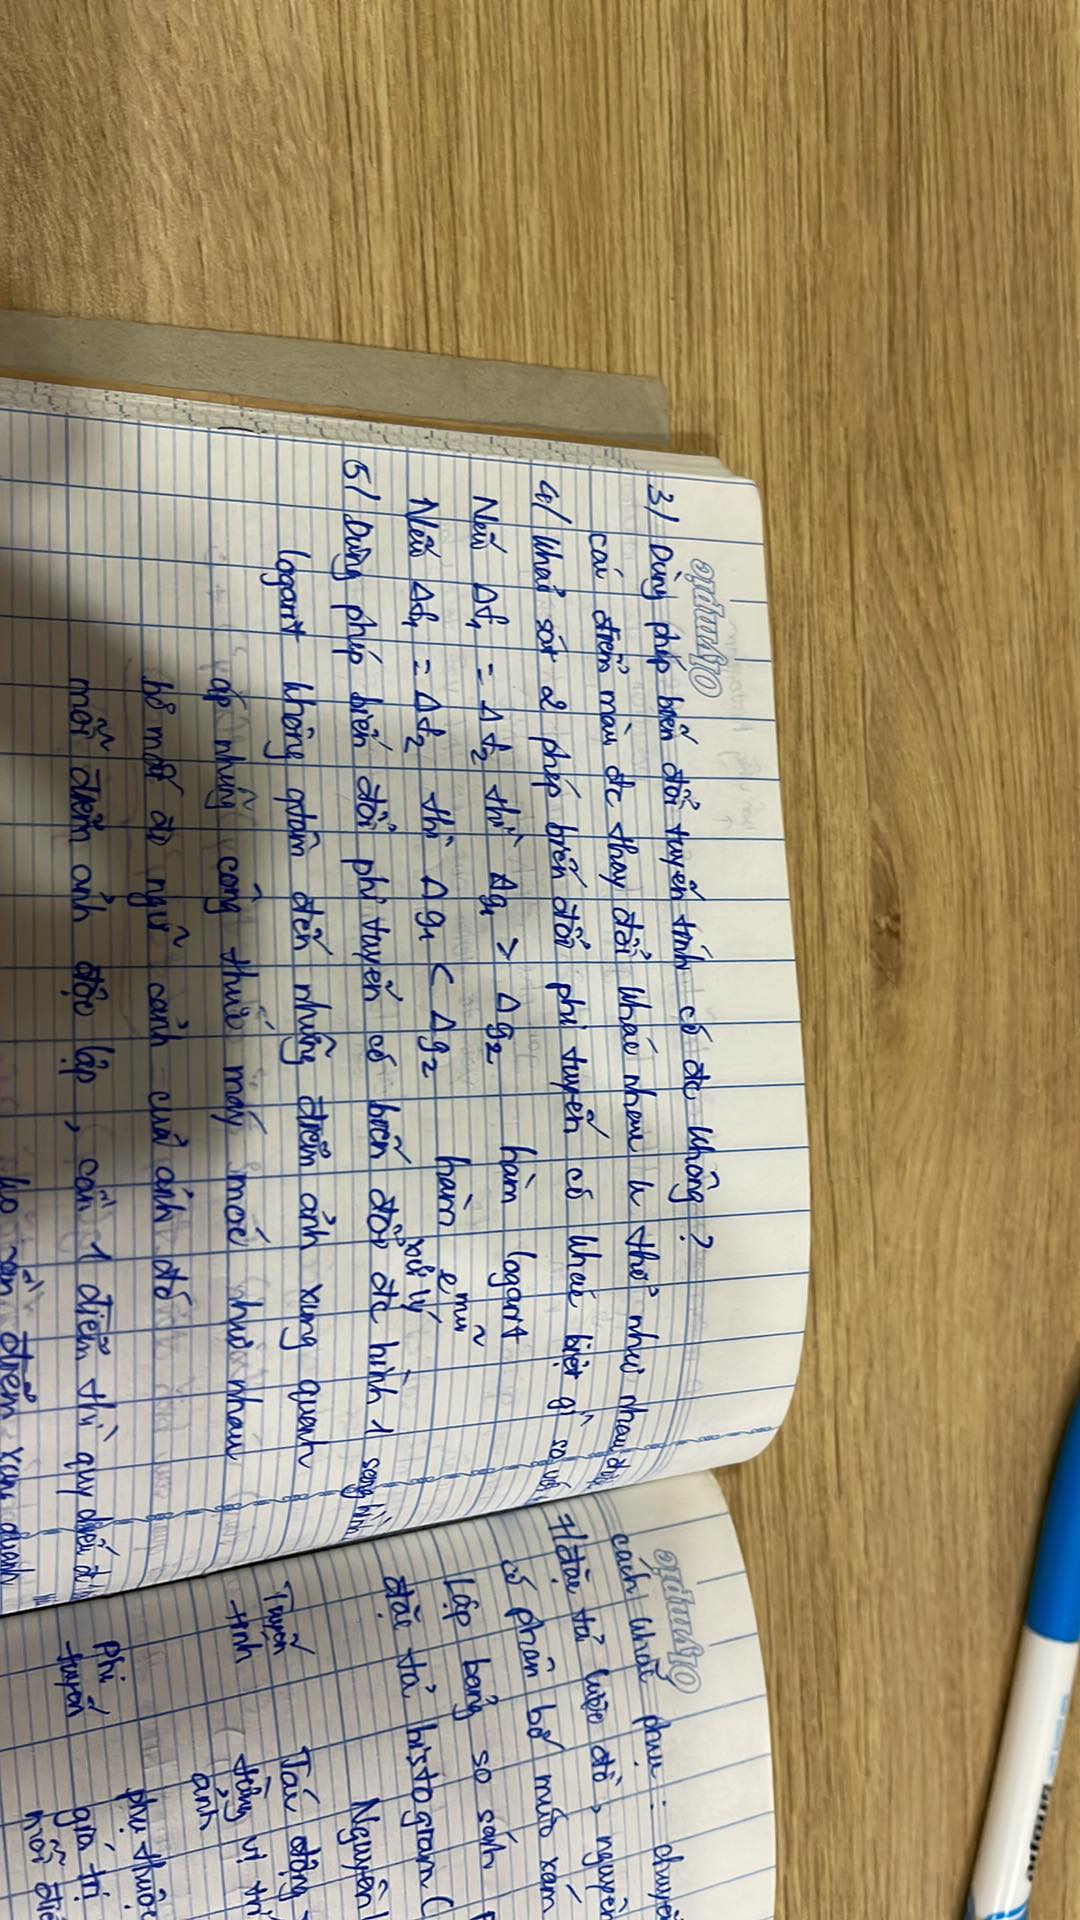 Olympic
3/ Dùng phép biến đổi tuyến tính có đc không?
các điểm màu đc thay đổi khác nhau k thể như nhau được
4/ Khảo sát 2 phép biến đổi phi tuyến có khác biệt gì so với
Nếu Δf1 = Δf2 thì Δg1 > Δg2 hàm logarit
Nếu Δf1 = Δf2 thì Δg1 < Δg2 hàm e mũ
5/ Dùng phép biến đổi phi tuyến có biến đổi đc hình 1 sang hình
xử lý
logarit không quan đến những điểm ảnh xung quanh
áp những công thức máy móc như nhau
bỏ mất đi ngữ cảnh của ảnh đó
mỗi điểm ảnh độc lập, còn 1 điểm thì
điểm xung quanh
Olympic
cách khắc phục: chuyển
7/ đặc tả lược đồ, nguyên
có phân bố mức xám
Lập bảng so sánh
đặc tả histogram (
Nguyên l
Tuyến
tính
Tác động
từng vị trí
ảnh
Phi
tuyến
phụ thuộc
giá trị
mỗi điể